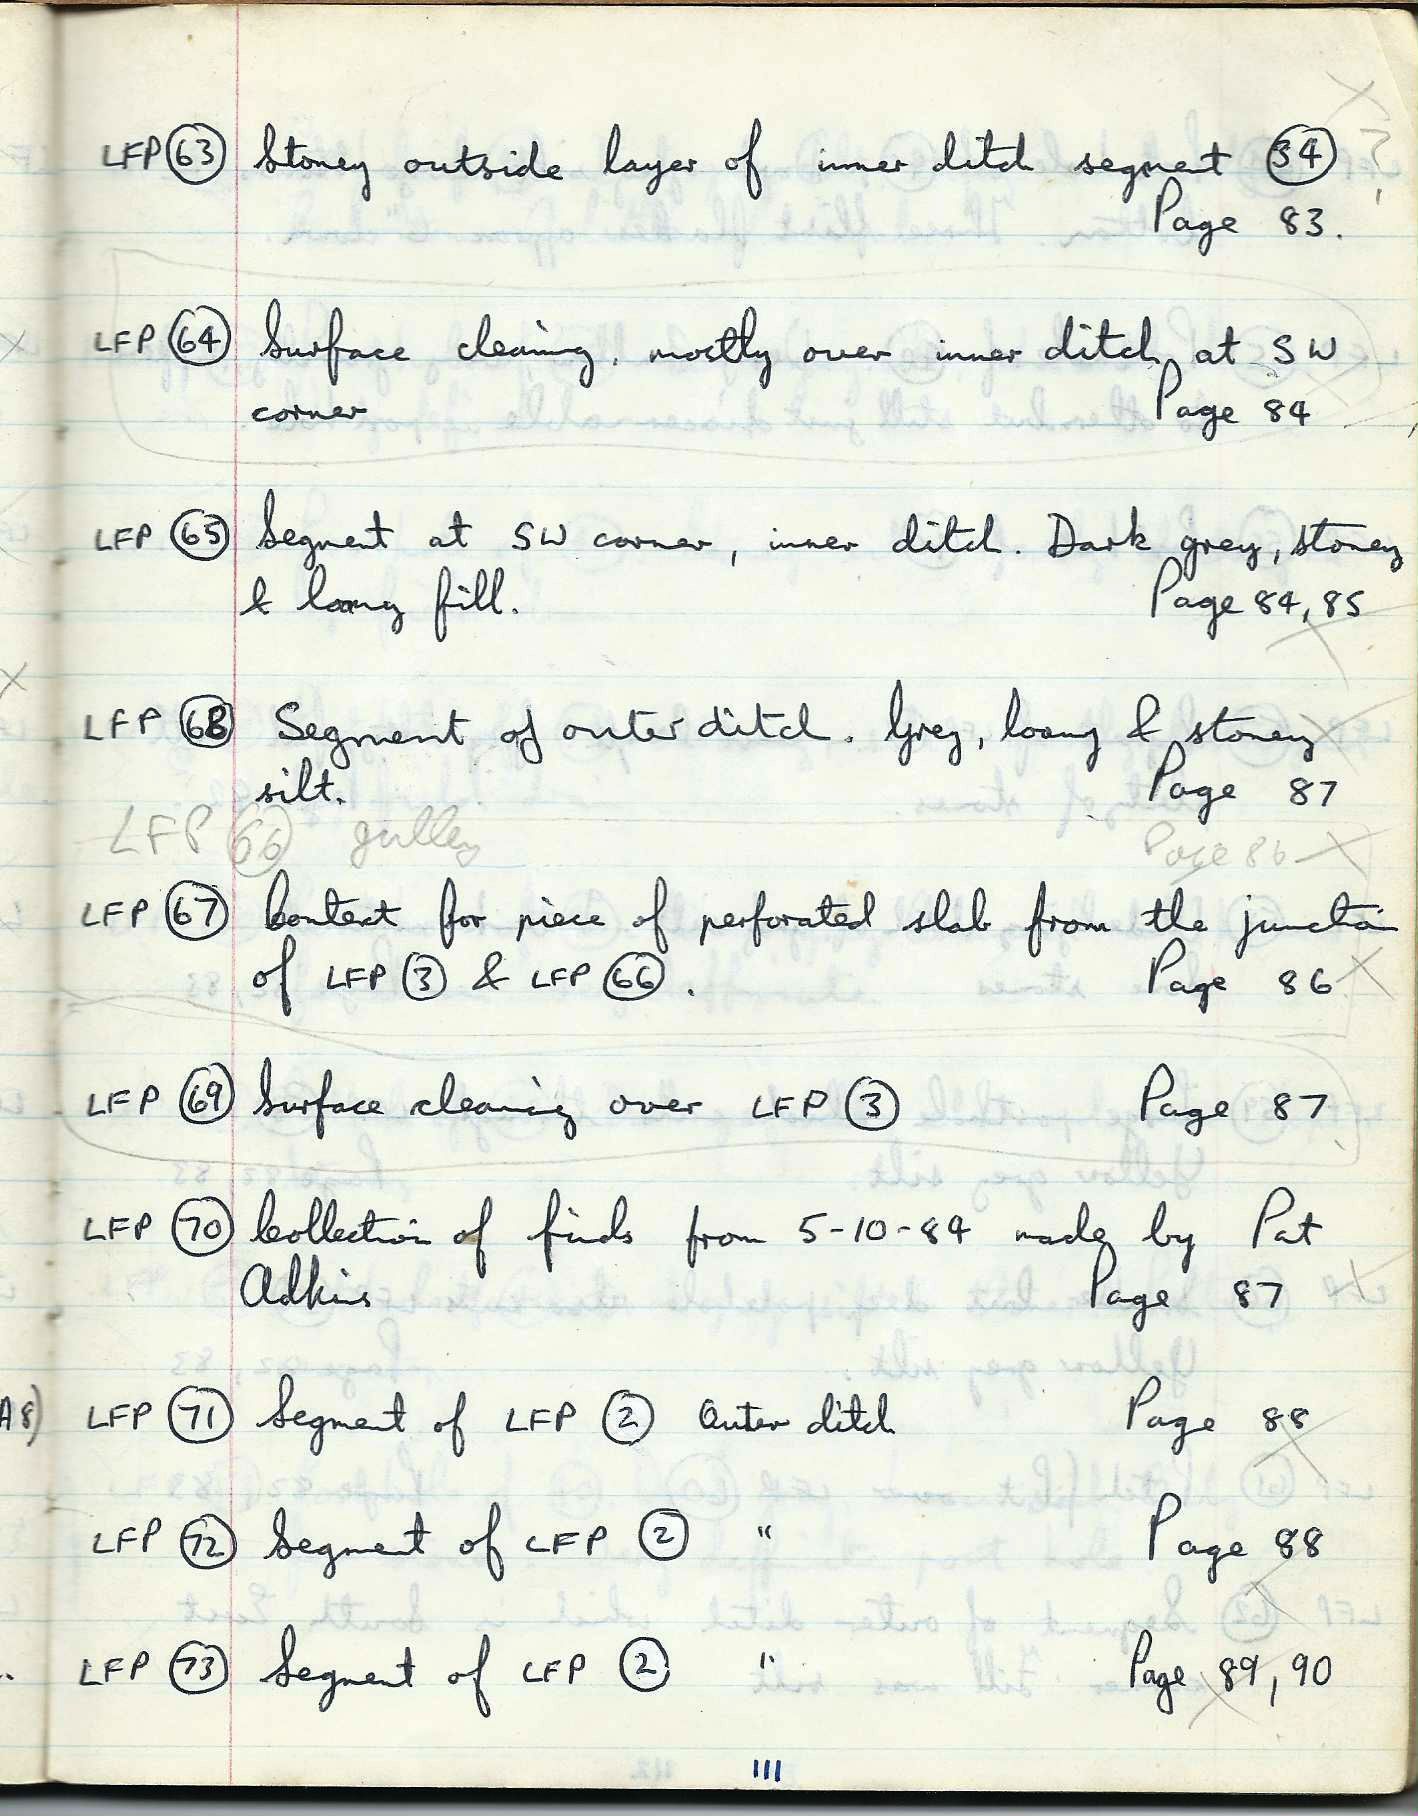 LFP 63 Stoney outside layer of inner ditch segment 34
Page 83.
LFP 64 Surface cleaning, mostly over inner ditch at SW
corner Page 84
LFP 65 Segment at SW corner, inner ditch. Dark grey, stoney
& loamy fill. Page 84, 85
LFP 68 Segment of outer ditch. Grey, loamy & stoney
silt. Page 87
LFP 66 gulley Page 86
LFP 67 Context for piece of perforated slab from the junction
of LFP 3 & LFP 66. Page 86
LFP 69 Surface cleaning over LFP 3 Page 87
LFP 70 Collection of finds from 5-10-84 made by Pat
Adkins Page 87
A8) LFP 71 Segment of LFP 2 Outer ditch Page 88
LFP 72 Segment of LFP 2 " Page 88
LFP 73 Segment of LFP 2 " Page 89, 90
111